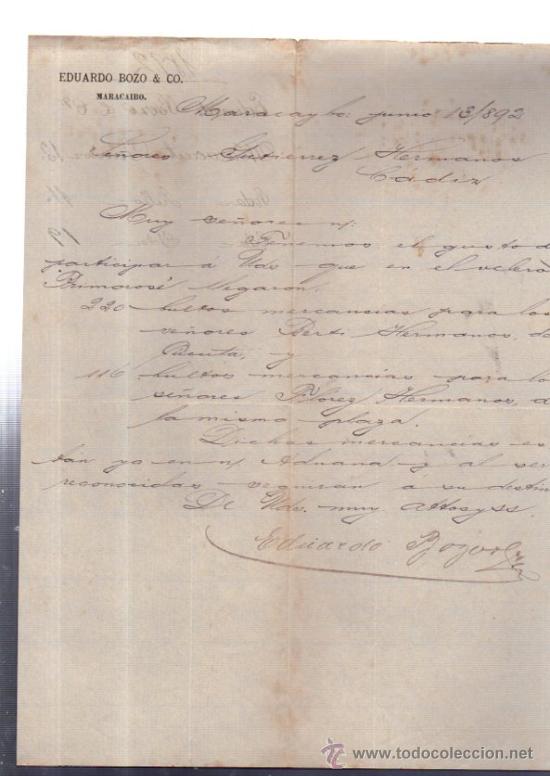 EDUARDO BOZO & CO.
MARACAIBO.
Maracaybo: junio 13/892
Señores Gutierrez Hermanos
Cádiz
Muy señores n/:
Tenemos el gusto d
participar á Uds. que en el velero
"Primorosé" llegaron.
220 bultos mercancias para los
señores Berti Hermanos, de
Cucuta, y
116 bultos mercancias para lo
señores Florez Hermanos, d
la misma plaza.
Dichas mercancias es
tán ya en n/ Aduana y al ser
reconocidas, seguirán á su destin
De Uds. muy attos y ss.
Eduardo Bozo &
TC www.todocoleccion.net